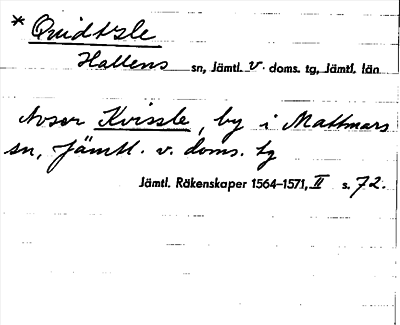 * Quidtzle
Hallens sn, Jämtl. v. doms. tg, Jämtl. län
Avser Kvissle, by i Mattmars
sn, Jämtl. v. doms. tg
Jämtl. Räkenskaper 1564–1571, II s. 72.